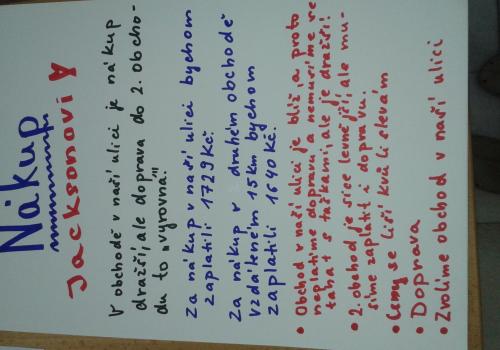 Nákup
Jacksonoví A
V obchodě v naší ulici je nákup
dražší, ale doprava do 2. obcho-
du to „vyrovná."
Za nákup v naší ulici bychom
zaplatili 1729 Kč.
Za nákup v druhém obchodě
vzdáleném 15km bychom
zaplatili 1640 Kč.
• Obchod v naší ulici je blíž, a proto
neplatíme dopravu a nemusíme se
tahat s taškami, ale je dražší.
• 2. obchod je sice levnější, ale mu-
síme zaplatit i dopravu.
• Ceny se liší kvůli slevám
• Doprava
• Zvolíme obchod v naší ulici